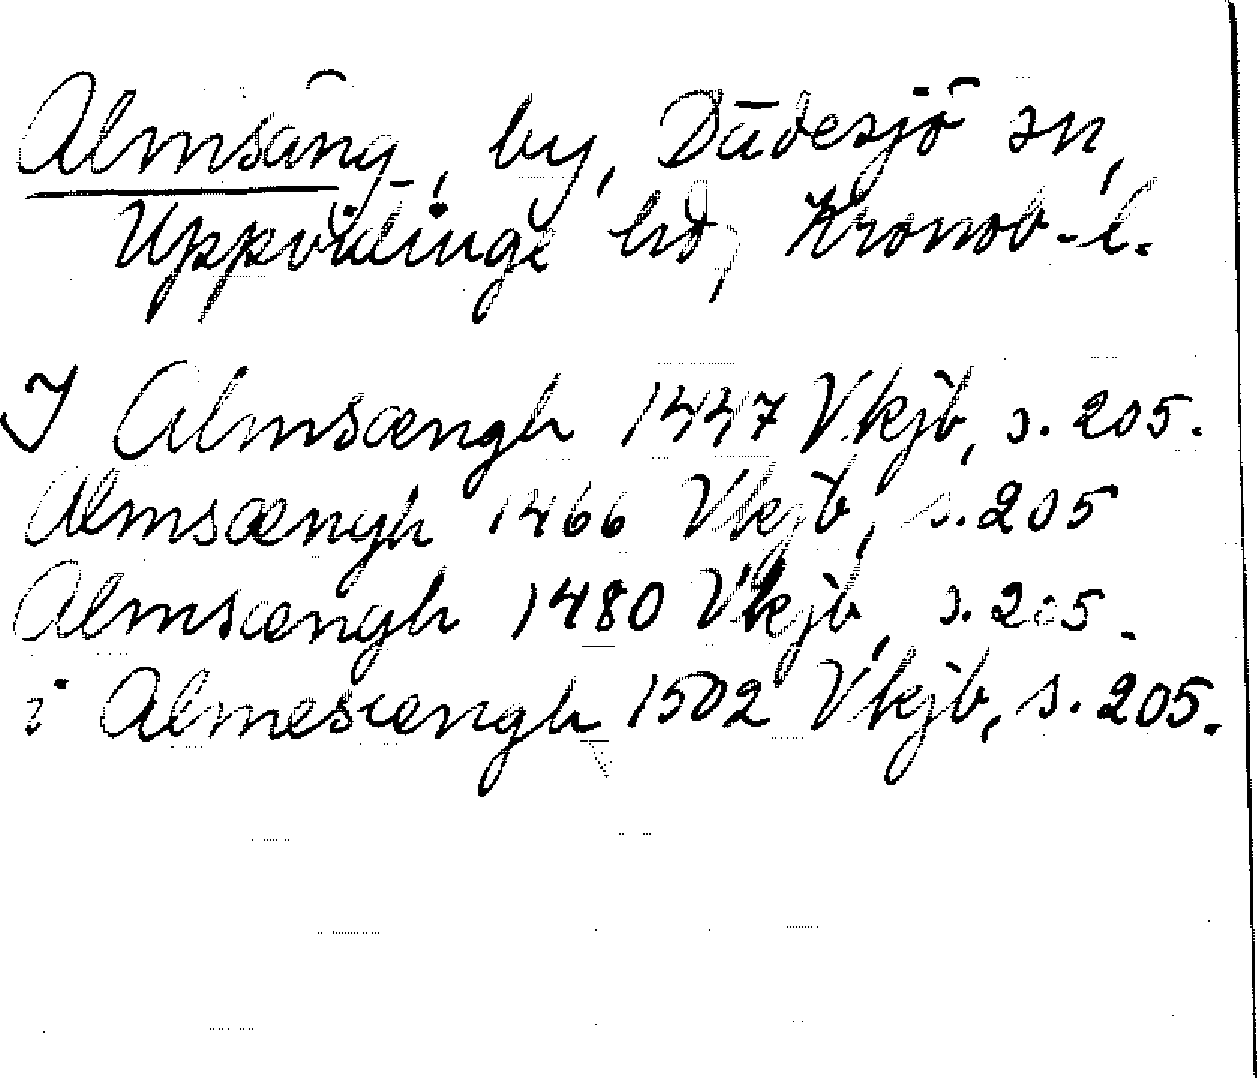 Almsäng, by, Dädesjö sn,
Uppvidinge hd, Kronob-l.
I Almsængh 1447 Vkjb, s. 205.
Almsængh 1466 Vkjb, s. 205
Almsængh 1480 Vkjb, s. 205.
i Almesængh 1502 Vkjb, s. 205.